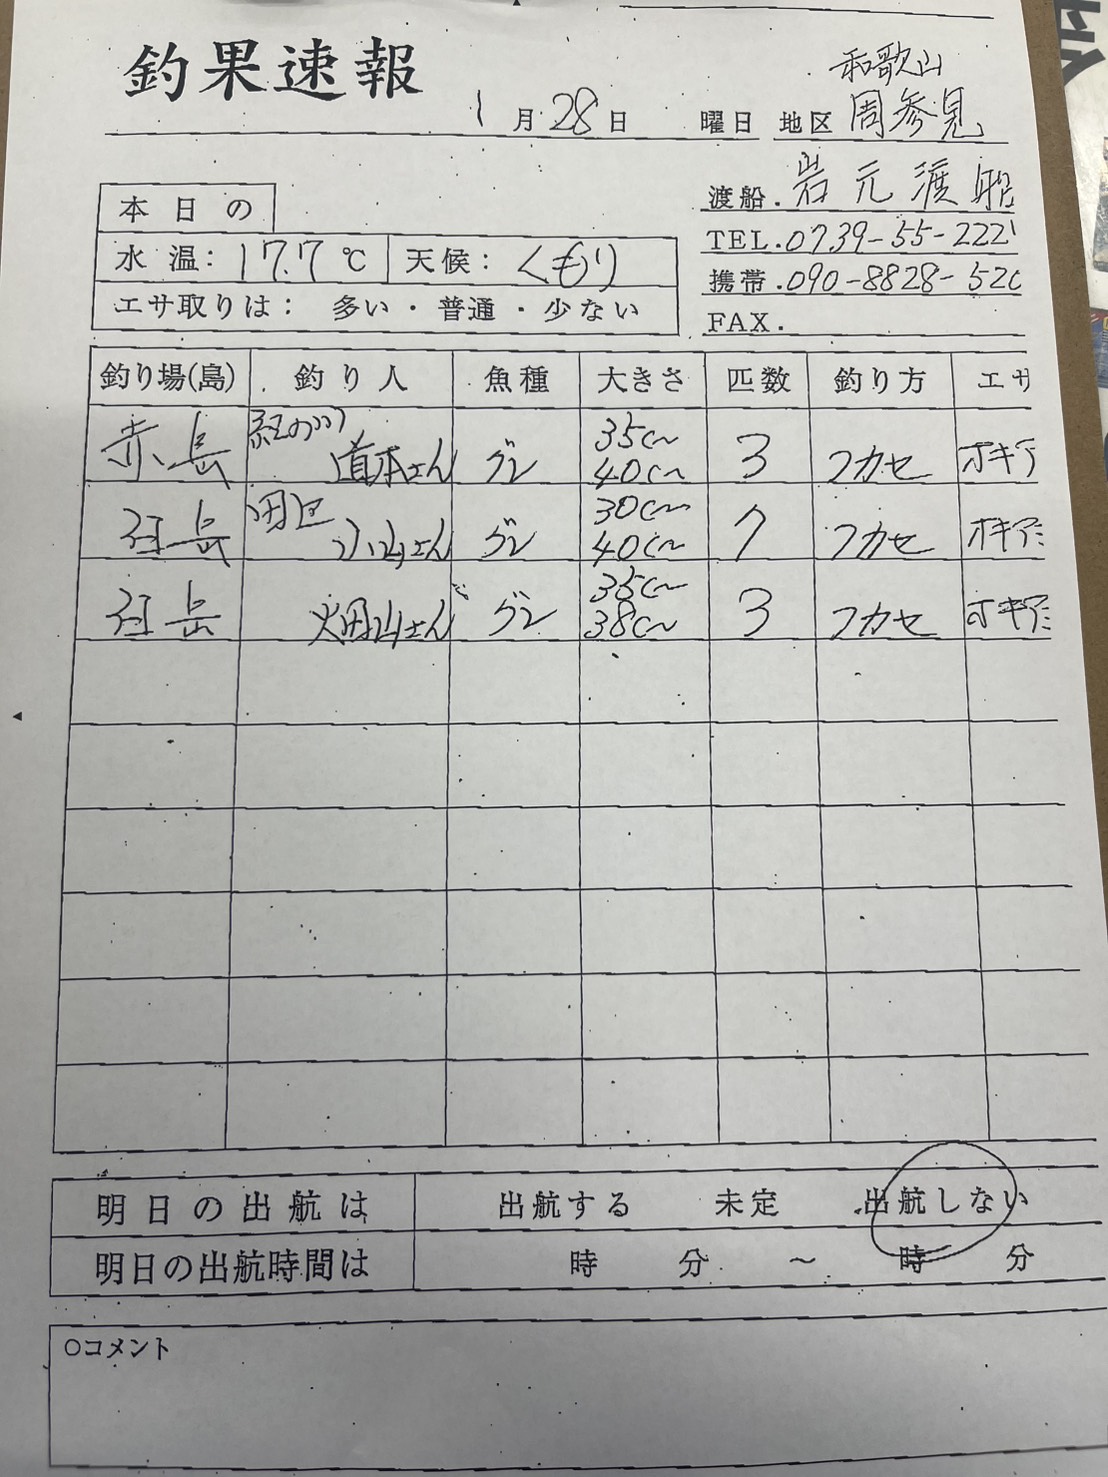 釣果速報
和歌山
1月28日 曜日 地区 周参見
渡船.岩元渡船
TEL.0739-55-222
携帯.090-8828-520
FAX.
本日の
水温: 17.7℃ 天候: くもり
エサ取りは: 多い・普通・少ない
釣り場(島) 釣り人 魚種 大きさ 匹数 釣り方 エサ
赤島 道本さん グレ 35cm 40cm 3 フカセ オキア
小山さん グレ 30cm 40cm 7 フカセ オキアミ
畑山さん グレ 35cm 38cm 3 フカセ オキアミ
明日の出航は 出航する 未定 出航しない
明日の出航時間は 時 分 ~ 時 分
○コメント